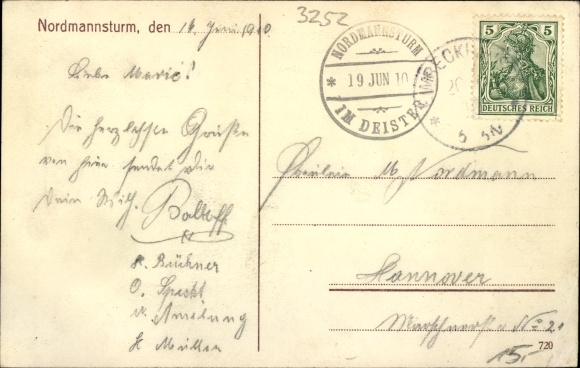 3252
Nordmannsturm, den 19 Juni 1910
Liebe Marie!
Die herzlichsten Grüße
von hier sendet Dir
Dein Wilh. Balhoff
K. Büchner
O. Specht
A. Amelung
H Müller
NORDMANNSTURM
* 19 JUN 10
IM DEISTER.
5
DEUTSCHES REICH
Fräulein M. Nordmann
Hannover
Marschnerstr No 21
720
15,-